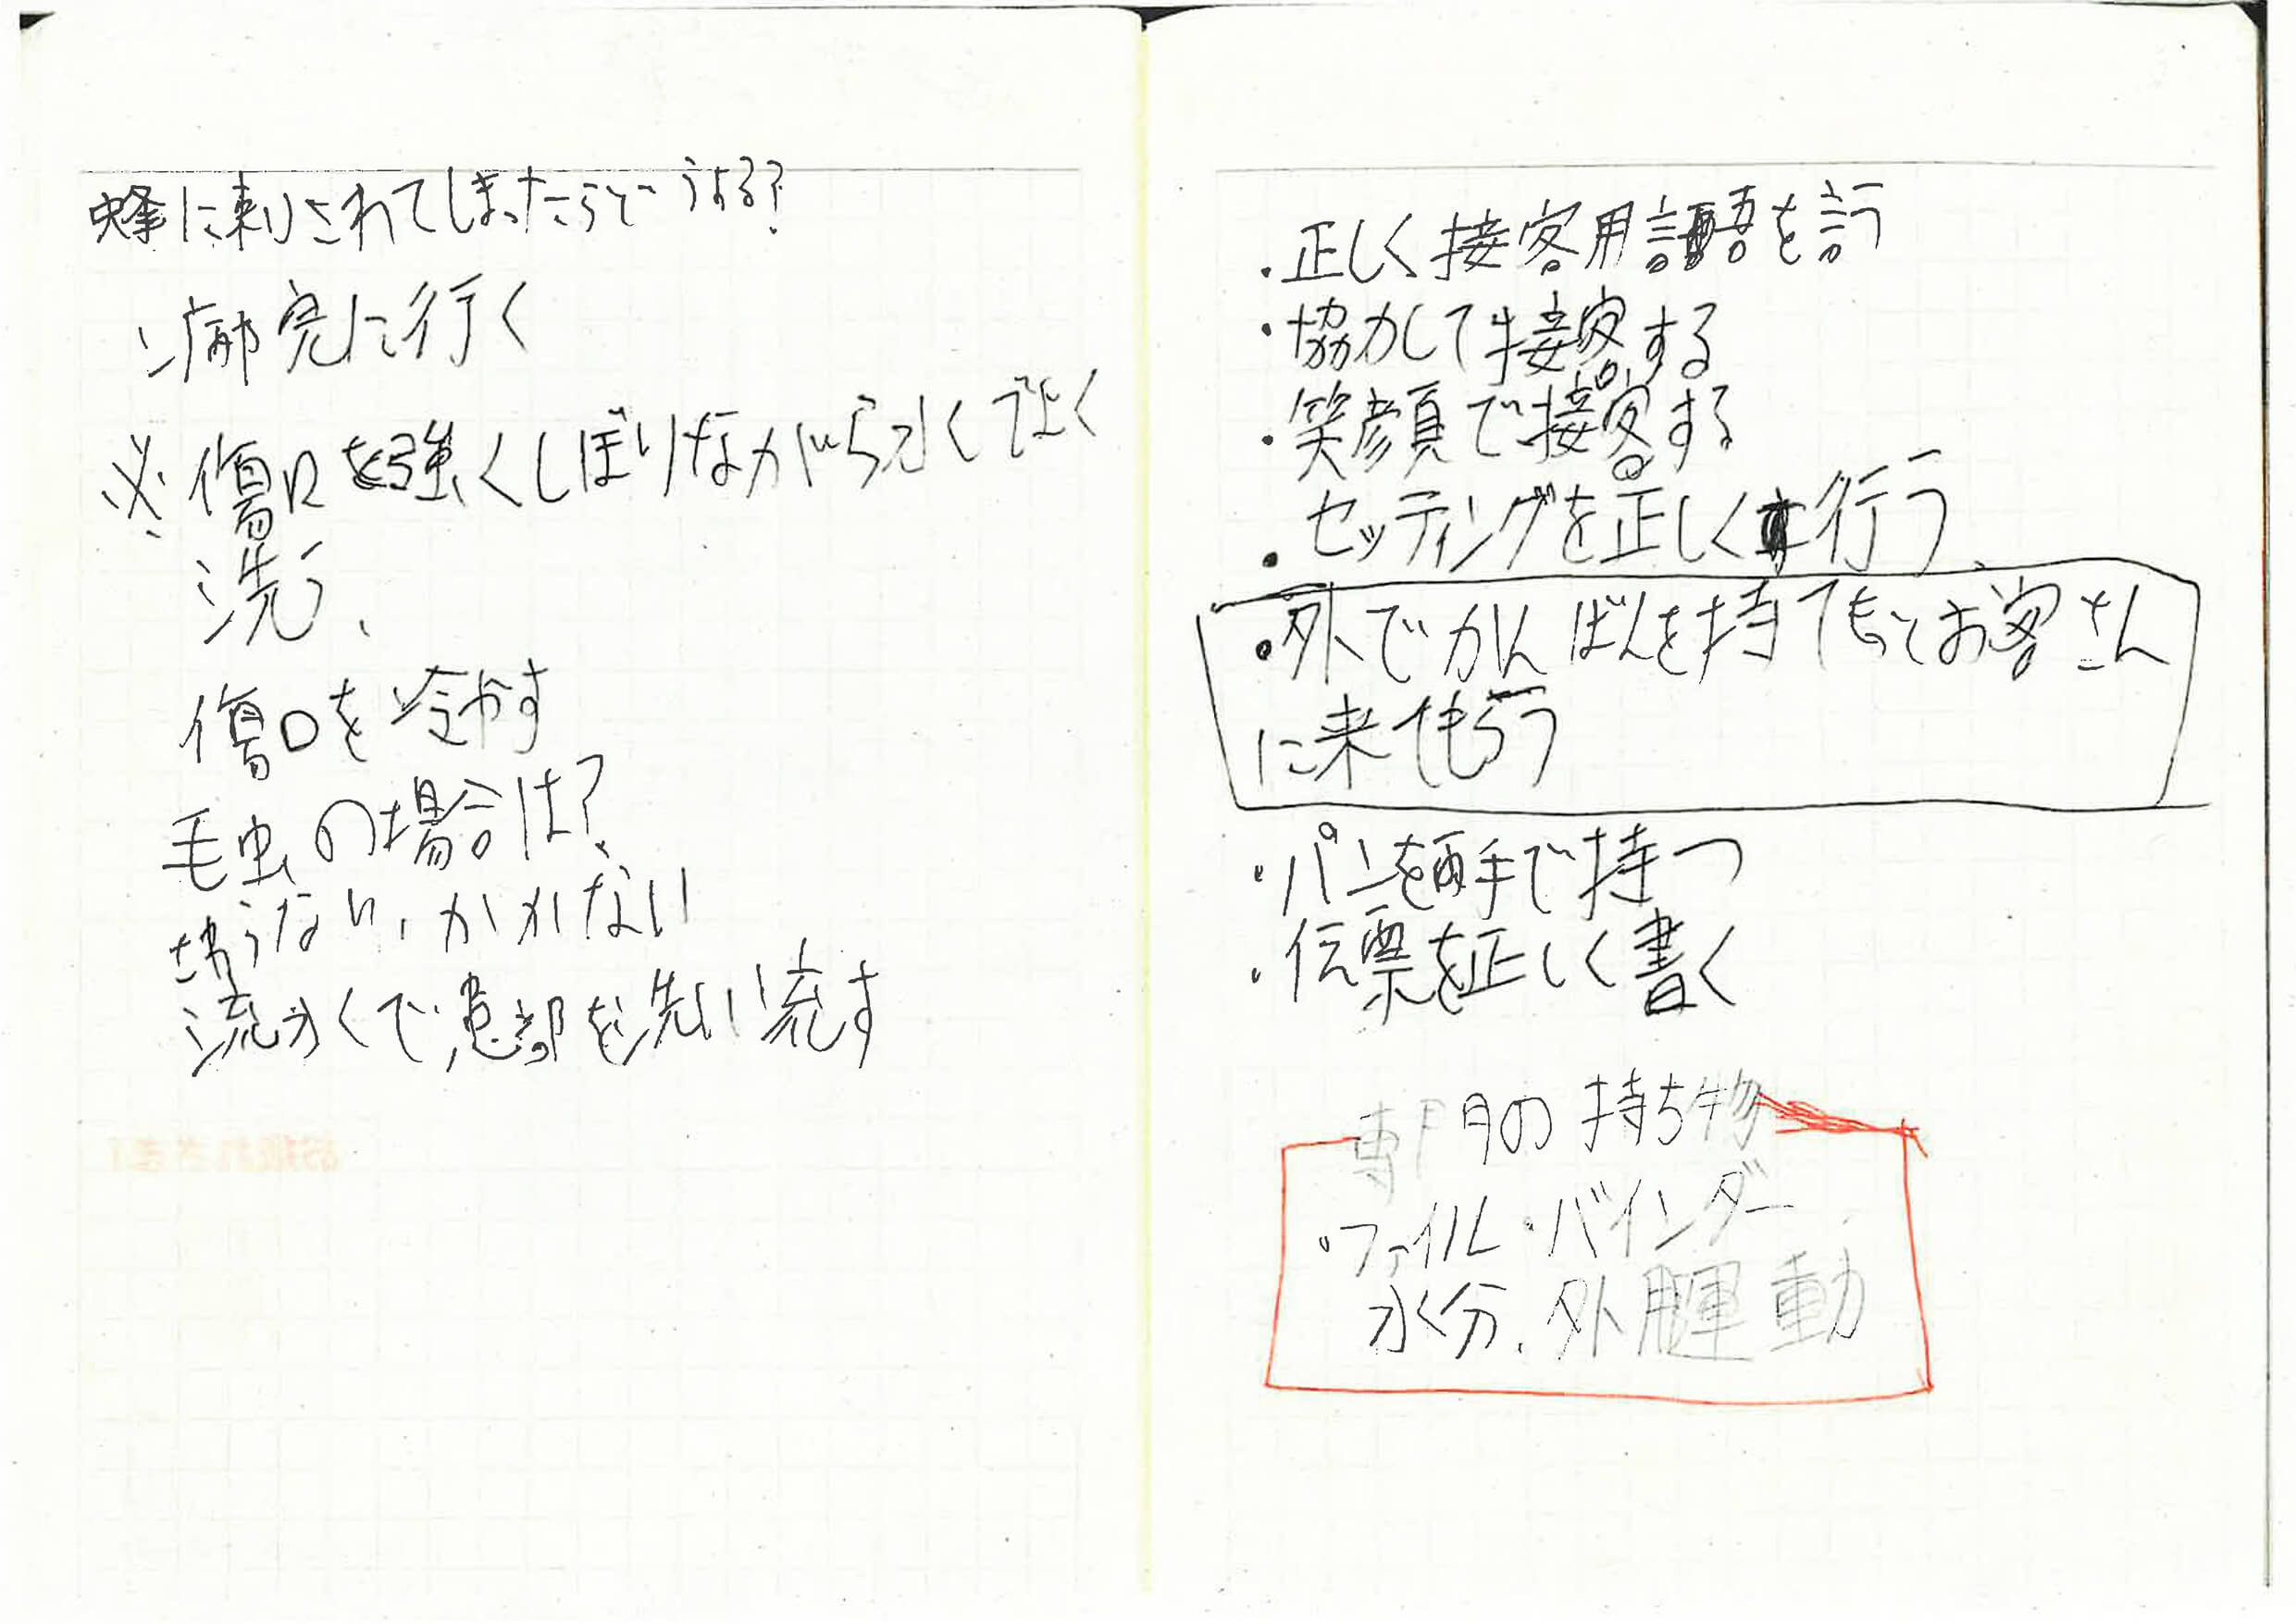 蜂に刺されてしまったらどうする?
に行く
※傷口を強くしぼりながら水でよく
洗う、
傷口を冷やす
毛虫の場合は?
さわらない、かかない
流水で患部を洗い流す
・正しく接客用語を言う
・協力して接客する
・笑顔で接客する
・セッティングを正しく行う
・外でかんばんを持てもっとお客さん
に来てもらう
・パンを両手で持つ
・伝票を正しく書く
専門の持ち物
・ファイル・バインダー
水分、外用運動